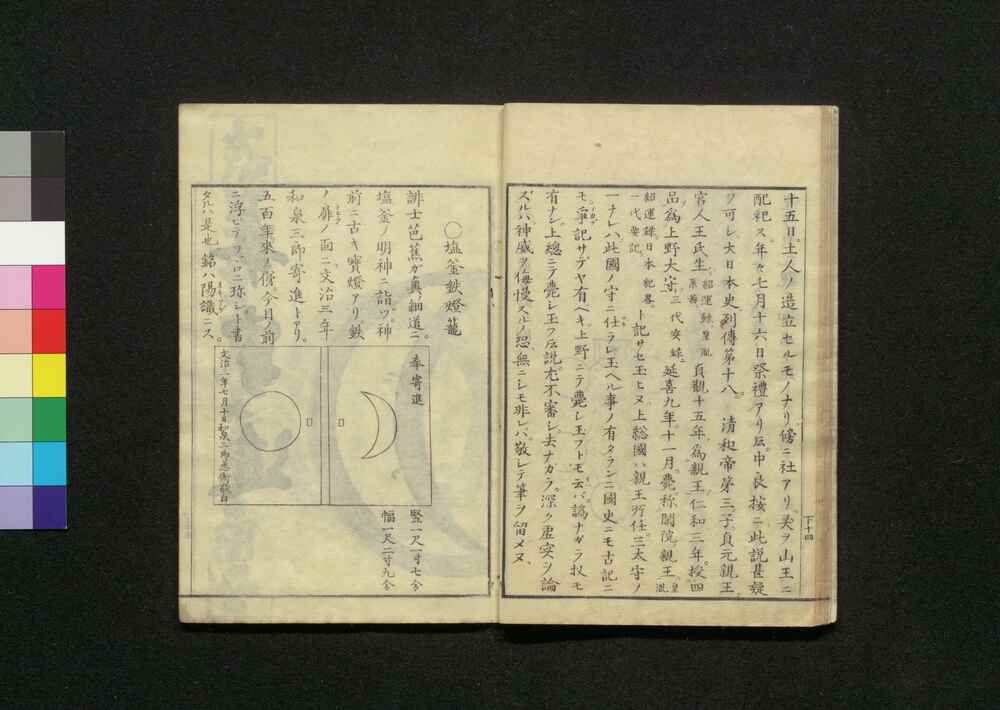 十五日。土人ノ造立セルモノナリ。傍ニ社アリ。美ヲ山王ニ
配祀ス。年々七月十六日祭禮アリ云。中良按ニ此説甚疑
フ可シ。大日本史列傳第十八。清和帝第三子貞元親王。
官人王氏生。紹運録皇胤系蕃貞觀十五年爲親王仁和三年。授四
品爲上野大守。三代実録延喜九年。十一月。薨称閑院親王。皇胤
紹運録日本紀畧一代要記。ト記サセ玉ヒヌ上総國ハ親王ノ任三太守ノ
一ナレハ此國ノ守ニ任ラレ玉ヘル事ノ有タランニ國史ニモ古記ニ
モ爭記サデヤ有ヘキ上野ニテ薨レ玉フトモ云バ譌ナガラ扠モ
有ナシ。上總ニテ薨レ玉フ云説尤不審シ。去ナガラ。深ク虚実ヲ論
ズルハ。神威ヲ侮慢スルノ恐無ニシモ非レバ。敬シテ筆ヲ留メヌ
下十四
〇塩釜鉄燈籠
誹士芭蕉ガ奥細道ニ
塩釜ノ明神ニ詣ヅ。神
前ニ古キ寶燈アリ鉄
ノ扉ノ面ニ文治三年
和泉三郎寄進トアリ。
五百年來ノ俤今目ノ前
ニ浮ビテソゾロニ珍シト書
タルハ是也。銘ハ陽識ニス。
奉寄進
文治三年七月十日和泉三郎忠衡敬白
竪一尺一寸七分
幅一尺二寸九分